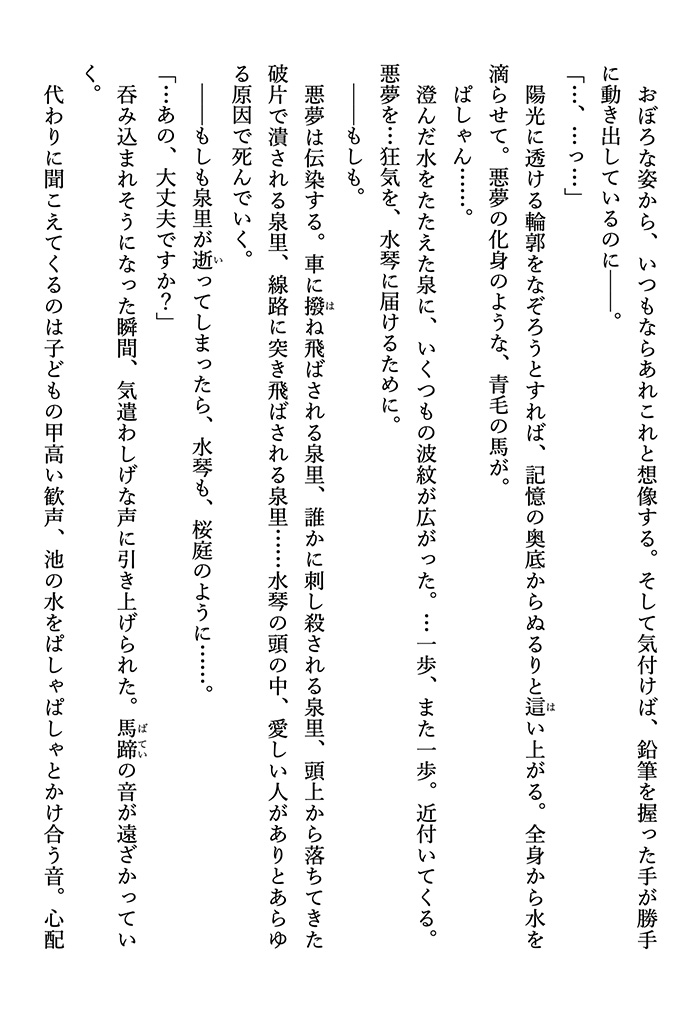 おぼろな姿から、いつもならあれこれと想像する。そして気付けば、鉛筆を握った手が勝手
に動き出しているのに――。
「…、…っ…」
陽光に透ける輪郭をなぞろうとすれば、記憶の奥底からぬるりと這い上がる。全身から水を
滴らせて。悪夢の化身のような、青毛の馬が。
ぱしゃん……。
澄んだ水をたたえた泉に、いくつもの波紋が広がった。…一歩、また一歩。近付いてくる。
悪夢を…狂気を、水琴に届けるために。
――もしも。
悪夢は伝染する。車に撥ね飛ばされる泉里、誰かに刺し殺される泉里、頭上から落ちてきた
破片で潰される泉里、線路に突き飛ばされる泉里……水琴の頭の中、愛しい人がありとあらゆ
る原因で死んでいく。
――もしも泉里が逝ってしまったら、水琴も、桜庭のように……。
「…あの、大丈夫ですか？」
呑み込まれそうになった瞬間、気遣わしげな声に引き上げられた。馬蹄の音が遠ざかってい
く。
代わりに聞こえてくるのは子どもの甲高い歓声、池の水をぱしゃぱしゃとかけ合う音。心配